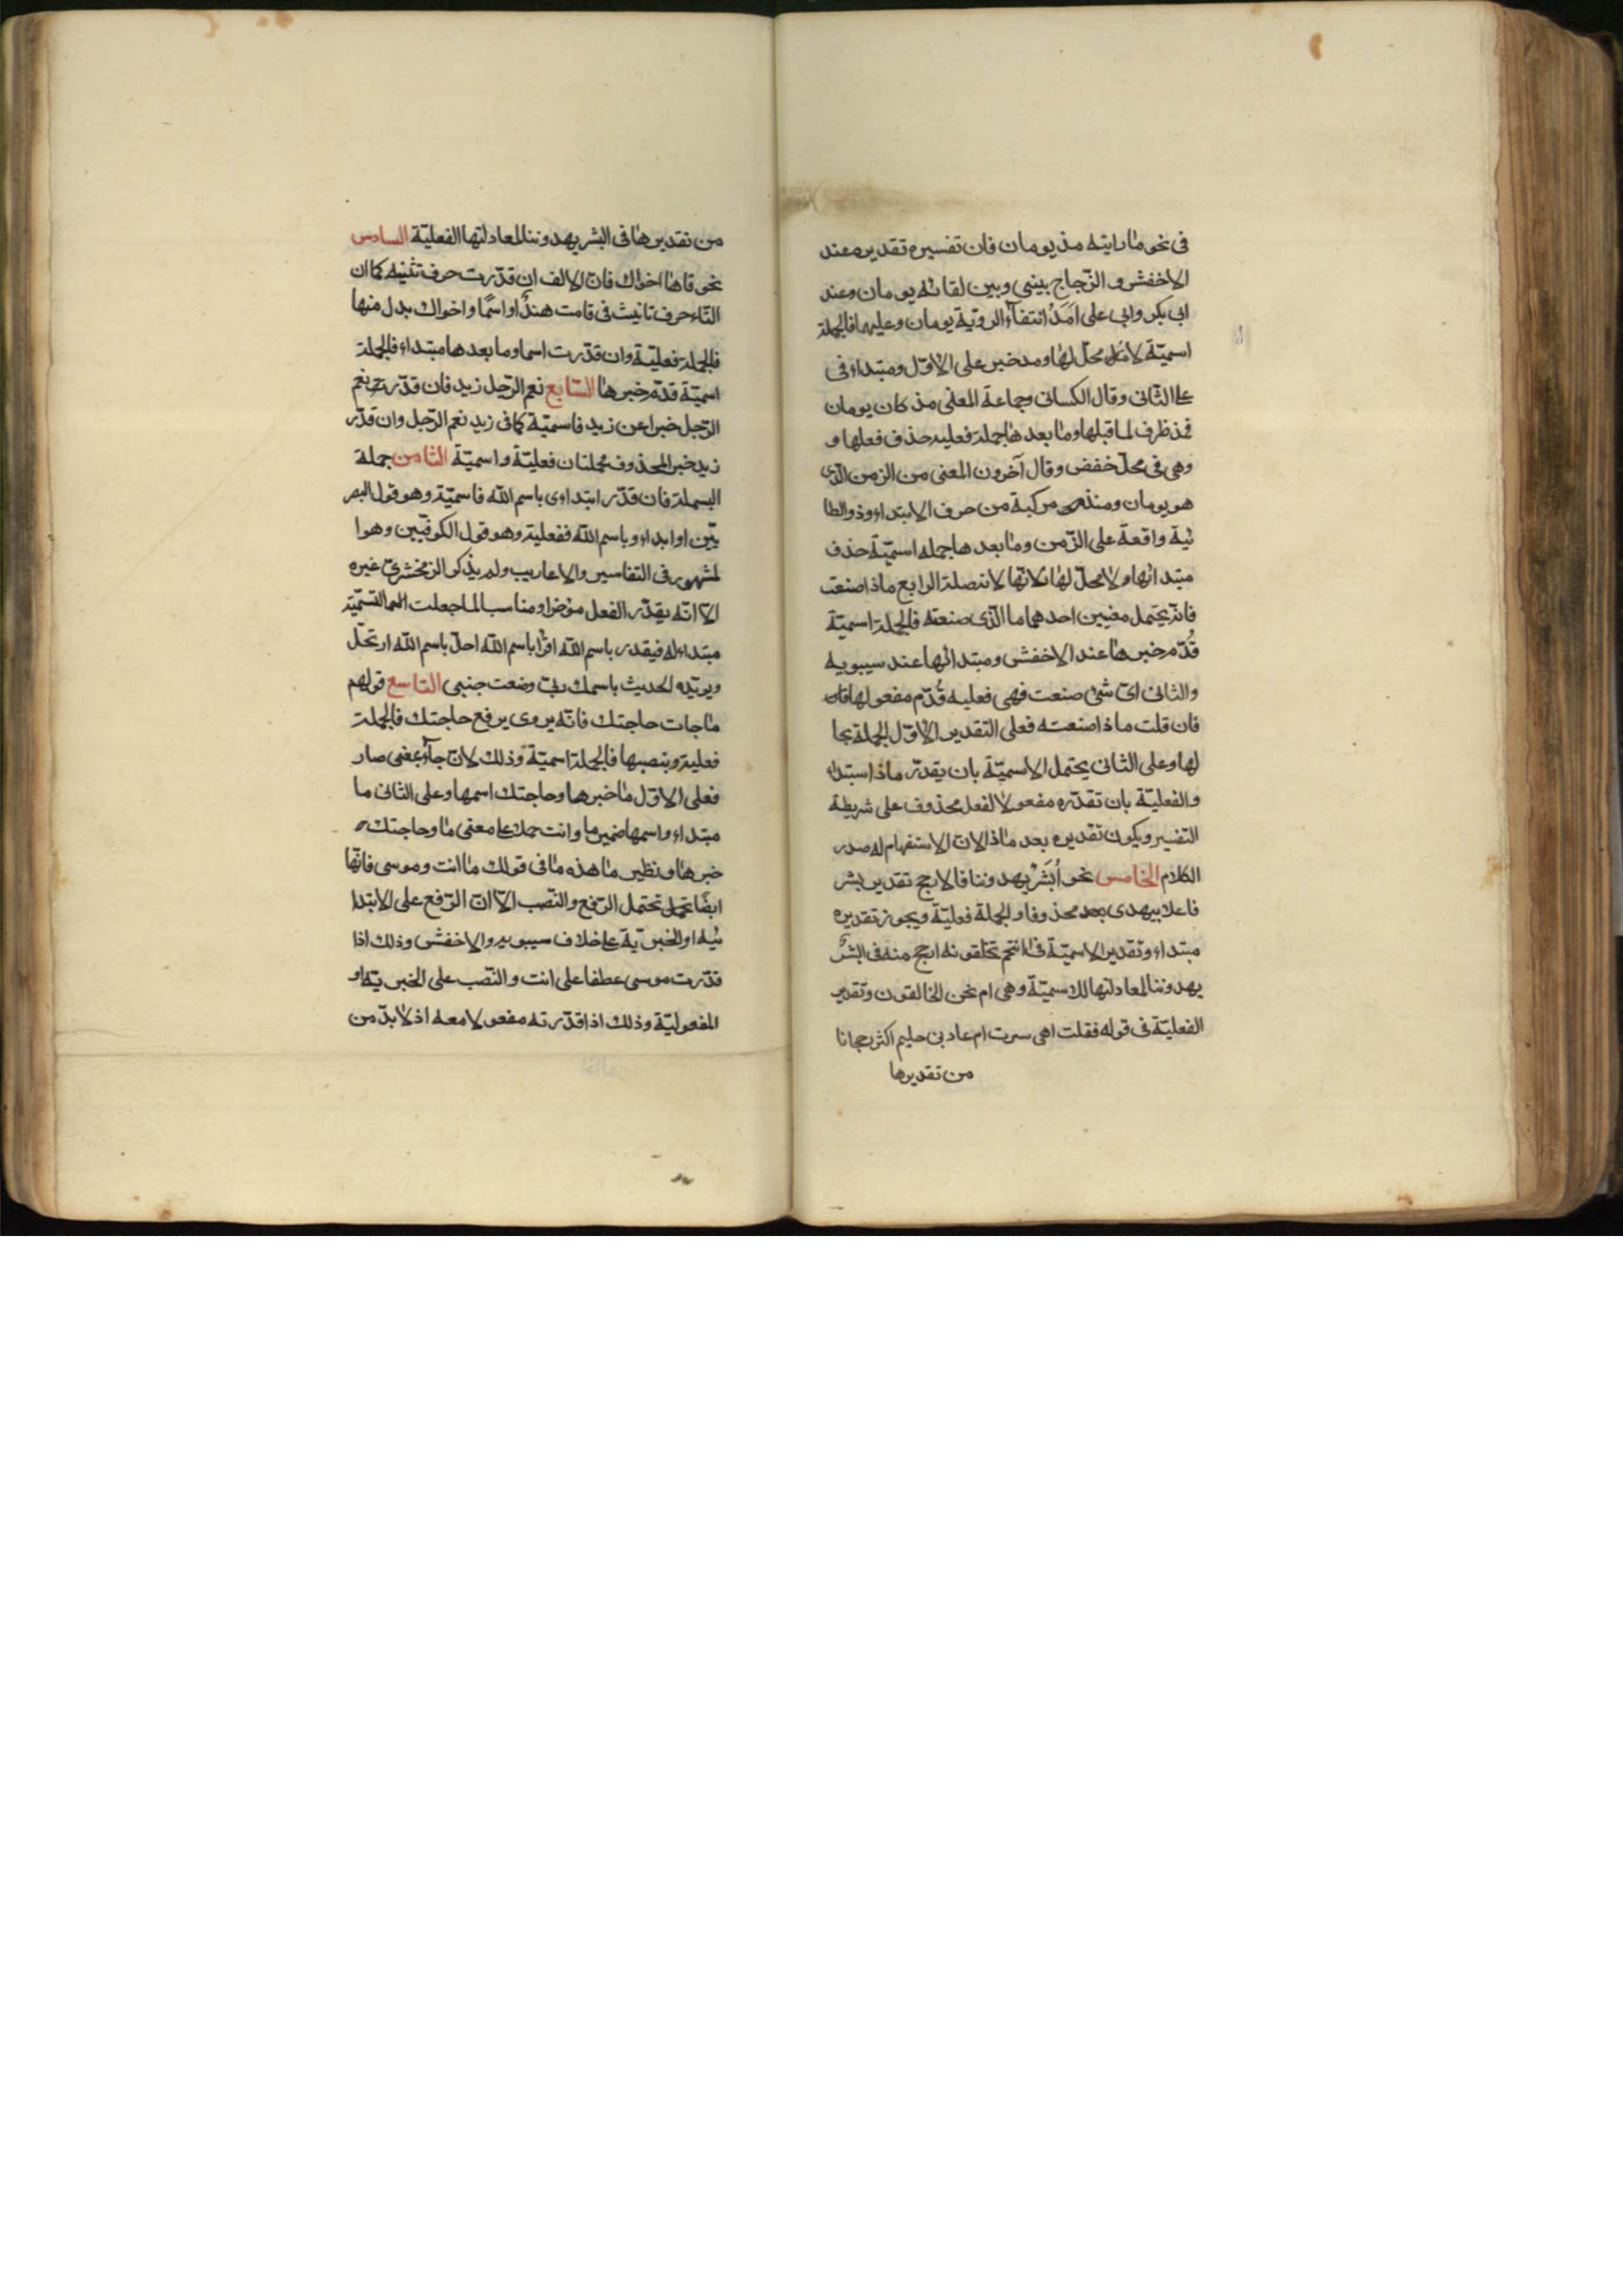 فى نحو ما رايته مذ يومان فان تفسيره تقديره عند
الاخفش و الزّجاج بينى وبين لقائه يومان وعند
ابى بكر وابى على امَدُ انتفآء الروية يومان وعليهما فالجملة
اسميّة لا محلّ لها ومد خبر على الاوّل ومبتداء فى
على الثّانى وقال الكسائى وجماعة المعنى مذ كان يومان
فمذ ظرف لما قبلها وما بعدها جملة فعليه حذف فعلها و
وهى فى محلّ خفض وقال آخرون المعنى من الزمن الذى
هو يومان ومنذ مركبة من حرف الابتداء وذو الطا
ئية واقعة على الزّمن وما بعدها جمله اسميّة حذف
مبتدائها ولا محلّ لها لانّها لانصلة الرابع ماذا صنعت
فانّه يحتمل معنيين احدهما ما الذى صنعته فالجملة اسميّة
قُدّم خبرها عند الاخفش ومبتدائها عند سيبويه
والثانى اىّ شئ صنعت فهى فعليه قُدّم مفعولها
فان قلت ماذا صنعته فعلى التقدير الاوّل الجملة بحا
لها وعلى الثانى يحتمل الاسميّة بان يقدّر ماذا مبتداء
والفعليّة بان تقدّره مفعولا لفعل محذوف على شريطة
التفسير ويكون تقديره بعد ماذا لانّ الاستفهام له صدر
الكلام الخامس نحو أَبَشَرٌ يهدوننا فالارجح تقدير بشر
فاعلا بيهدى محذوفا والجملة فعليّة ويجوز تقديره
مبتداء وتقدير الاسميّة فى اانتم تخلقونه ارجح منه فى ابشرٌ
يهدوننا لمعادلتها للاسميّة وهى ام نحن الخالقون وتقدير
الفعليّة فى قوله فقلت اهى سرت ام عادنى حليم اكثر رجحانا
من تقديرها
من تقديرها فى ابشر يهدوننا لمعادلتها الفعليّة السادس
نحو قاما اخواك فانّ الالف ان قدّرت حرف تثنيه كما ان
التّاء حرف تانيث فى قامت هندٌ او اسمًا واخواك بدل منها
فالجملة فعليّة وان قدّرت اسما وما بعدها مبتداء فالجملة
اسميّة قدّم خبرها السّابع نعم الرّجل زيد فان قدّرت نعم
الرّجل خبرا عن زيد فاسميّة كما فى زيد نعم الرّجل وان قدّر
زيد خبر المحذوف فجملتان فعليّة واسميّة الثّامن جملة
البسملة فان قدّر ابتداءى باسم اللّه فاسميّة وهو قول البصر
يّين او ابداء وباسم اللّه ففعلية وهو قول الكوفيّين وهوا
لمشهور فى التفاسير والاعاريب ولم يذكر الزمخشرىّ غيره
الاّ انّه يقدّر الفعل مؤخرا ومناسبا لما جعلت التّسميّة
مبتداء له فيقدر باسم اللّه اقرا باسم اللّه احلّ باسم اللّه ارتحل
ويويّده الحديث باسمك ربّى وضعت جنبى التّاسع قولهم
ما جات حاجتك فانّه يروى يرفع حاجتك فالجملة
فعلية وبنصبها فالجملة اسميّة وذلك لانّ جآء بمعنى صار
فعلى الاوّل ما خبرها وحاجتك اسمها وعلى الثانى ما
مبتداء واسمها ضمير ما وانت حملا على معنى ما وحاجتك
خبرها ونظير ما هذه ما فى قولك ما انت وموسى فانّها
ايضًا تحتمل الرّفع والنّصب الاّ انّ الرّفع على الابتدا
ئيه او الخبريّة على خلاف سيبويه والاخفش وذلك اذا
قدّرت موسى عطفا على انت والنّصب على الخبريّة او
المفعوليّة وذلك اذا قدّرته مفعولا معه اذ لا بدّ من